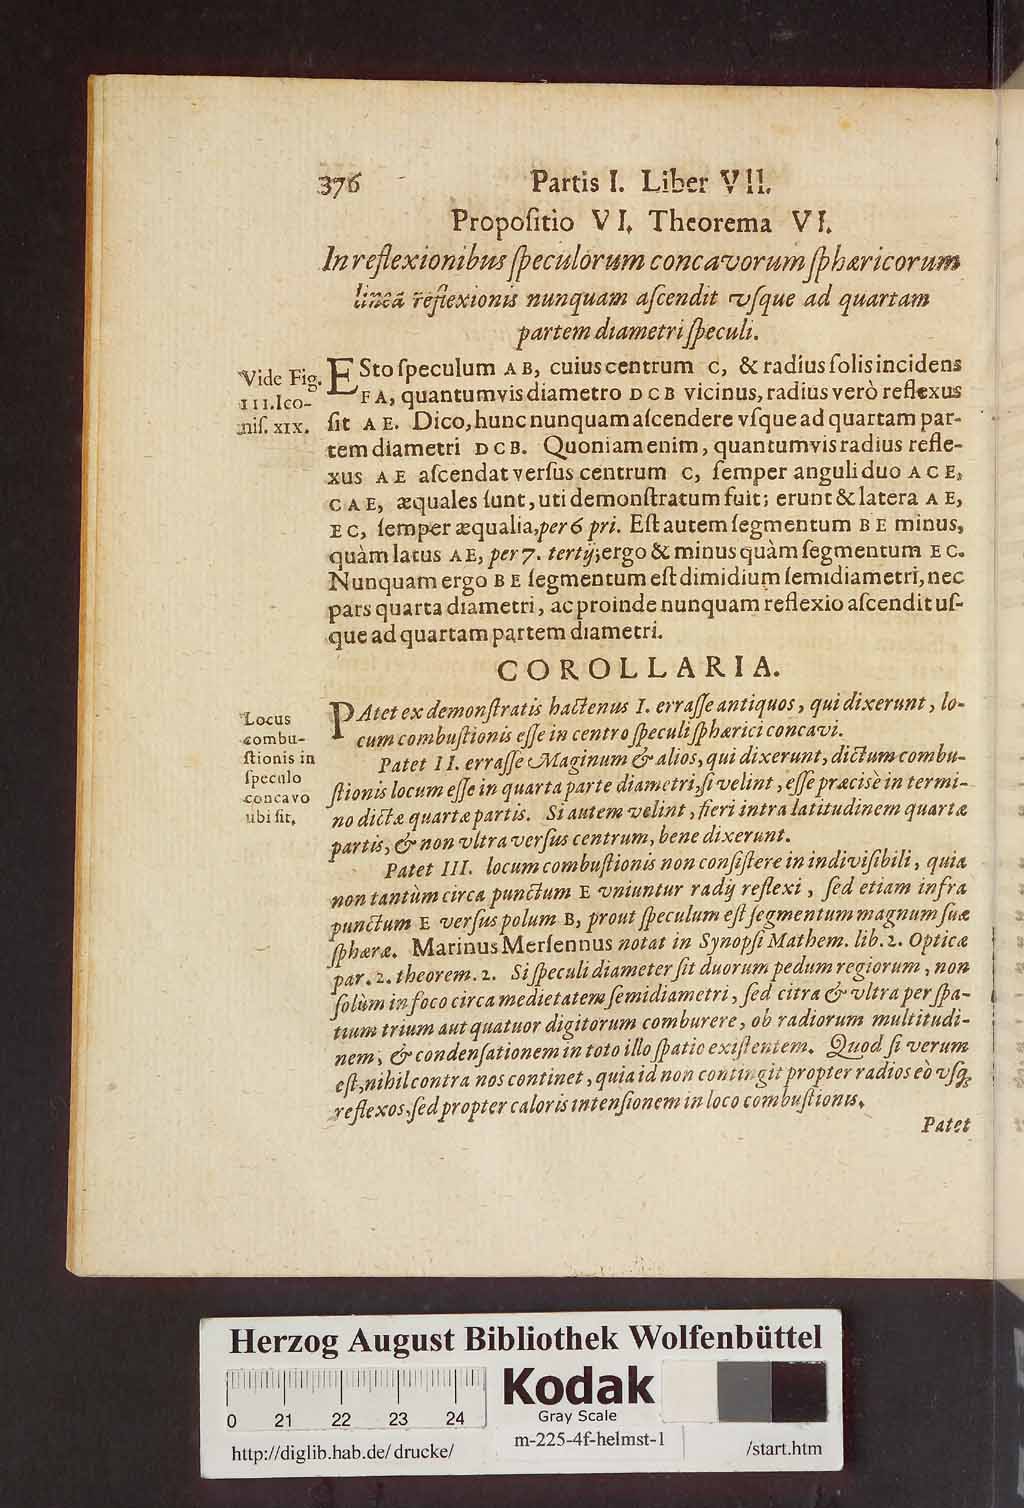 376 Partis I. Liber VII.
Propoſitio VI. Theorema VI.
In reflexionibus ſpeculorum concavorum ſphæricorum
linea reflexionis nunquam aſcendit vſque ad quartam
partem diametri ſpeculi.
Vide Fig.
III. Ico-
niſ. XIX.
ESto ſpeculum AB, cuius centrum C, & radius ſolis incidens
FA, quantumvis diametro DCB vicinus, radius verò reflexus
ſit AE. Dico, hunc nunquam aſcendere vſque ad quartam par-
tem diametri DCB. Quoniam enim, quantumvis radius refle-
xus AE aſcendat verſus centrum C, ſemper anguli duo ACE,
CAE, æquales ſunt, uti demonſtratum fuit; erunt & latera AE,
EC, ſemper æqualia, per 6 pri. Eſt autem ſegmentum BE minus,
quàm latus AE, per 7. tertij; ergo & minus quàm ſegmentum EC.
Nunquam ergo BE ſegmentum eſt dimidium ſemidiametri, nec
pars quarta diametri, ac proinde nunquam reflexio aſcendit uſ-
que ad quartam partem diametri.
COROLLARIA.
Locus
combu-
ſtionis in
ſpeculo
concavo
ubi ſit.
PAtet ex demonſtratis hactenus I. erraſſe antiquos, qui dixerunt, lo-
cum combuſtionis eſſe in centro ſpeculi ſphærici concavi.
Patet II. erraſſe Maginum & alios, qui dixerunt, dictum combu-
ſtionis locum eſſe in quarta parte diametri, ſi velint, eſſe præcisè in termi-
no dictæ quartæ partis. Si autem velint, fieri intra latitudinem quartæ
partis, & non vltra verſus centrum, bene dixerunt.
Patet III. locum combuſtionis non conſiſtere in indiviſibili, quia
non tantùm circa punctum E vniuntur radij reflexi, ſed etiam infra
punctum E verſus polum B, prout ſpeculum eſt ſegmentum magnum ſuæ
ſphæræ. Marinus Merſennus notat in Synopſi Mathem. lib. 2. Opticæ
par. 2. theorem. 2. Si ſpeculi diameter ſit duorum pedum regiorum, non
ſolùm in foco circa medietatem ſemidiametri, ſed citra & vltra per ſpa-
tium trium aut quatuor digitorum comburere, ob radiorum multitudi-
nem, & condenſationem in toto illo ſpatio exiſtentem. Quod ſi verum
eſt, nihil contra nos continet, quia id non contingit propter radios eò vſq;
reflexos, ſed propter caloris intenſionem in loco combuſtionis.
Patet
Herzog August Bibliothek Wolfenbüttel
0 21 22 23 24
Kodak
Gray Scale
http://diglib.hab.de/drucke/ m-225-4f-helmst-1 /start.htm